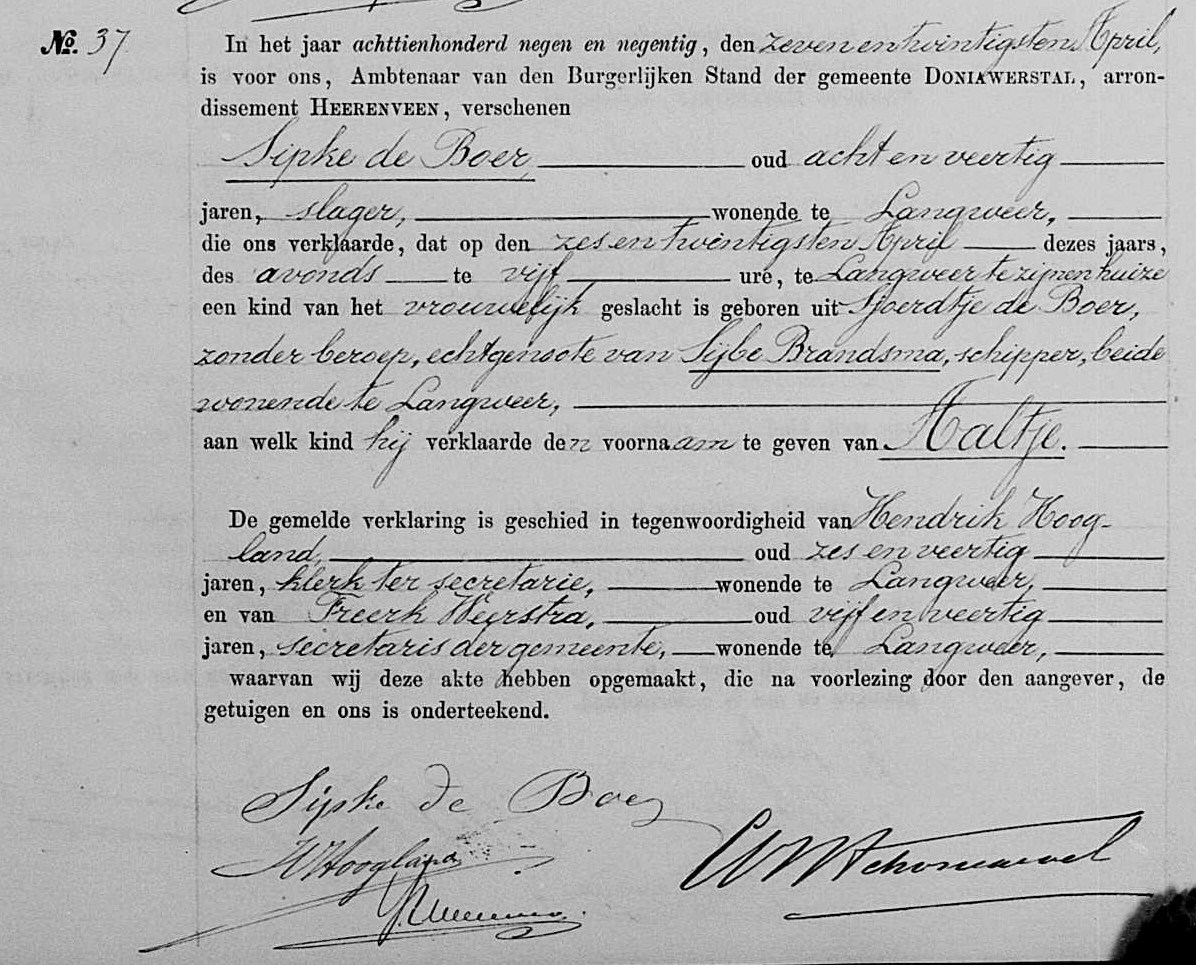 No. 37
In het jaar achttienhonderd negen en negentig, den zeven en twintigsten April,
is voor ons, Ambtenaar van den Burgerlijken Stand der gemeente DONIAWERSTAL, arron-
dissement HEERENVEEN, verschenen
Sipke de Boer, oud acht en veertig
jaren, slager, wonende te Langweer,
die ons verklaarde, dat op den zes en twintigsten April dezes jaars,
des avonds te vijf ure, te Langweer te zijnen huize
een kind van het vrouwelijk geslacht is geboren uit Sjoerdtje de Boer,
zonder beroep, echtgenoote van Sijbe Brandsma, schipper, beide
wonende te Langweer,
aan welk kind hij verklaarde den voornaam te geven van Aaltje.
De gemelde verklaring is geschied in tegenwoordigheid van Hendrik Hoog-
land, oud zes en veertig
jaren, klerk ter secretarie, wonende te Langweer,
en van Freerk Weerstra, oud vijf en veertig
jaren, secretaris der gemeente, wonende te Langweer,
waarvan wij deze akte hebben opgemaakt, die na voorlezing door den aangever, de
getuigen en ons is onderteekend.
Sipke de Boer
H Hoogland